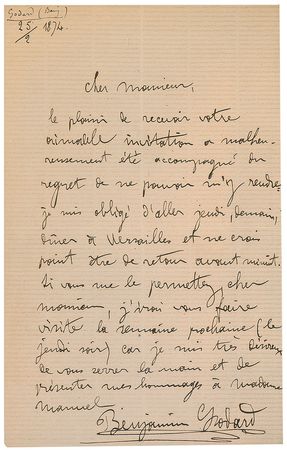 Godard (Benj)
25/2 1874.
cher monsieur,
le plaisir de recevoir votre
aimable invitation a malheu-
reusement été accompagné du
regret de ne pouvoir m'y rendre.
je suis obligé d'aller jeudi, demain,
dîner à Versailles et ne crois
point être de retour avant minuit.
Si vous me le permettez, cher
monsieur, j'irai vous faire
visite la semaine prochaine (le
jeudi soir) car je suis très désireux
de vous serrer la main et de
présenter mes hommages à madame
manuel
Benjamin Godard